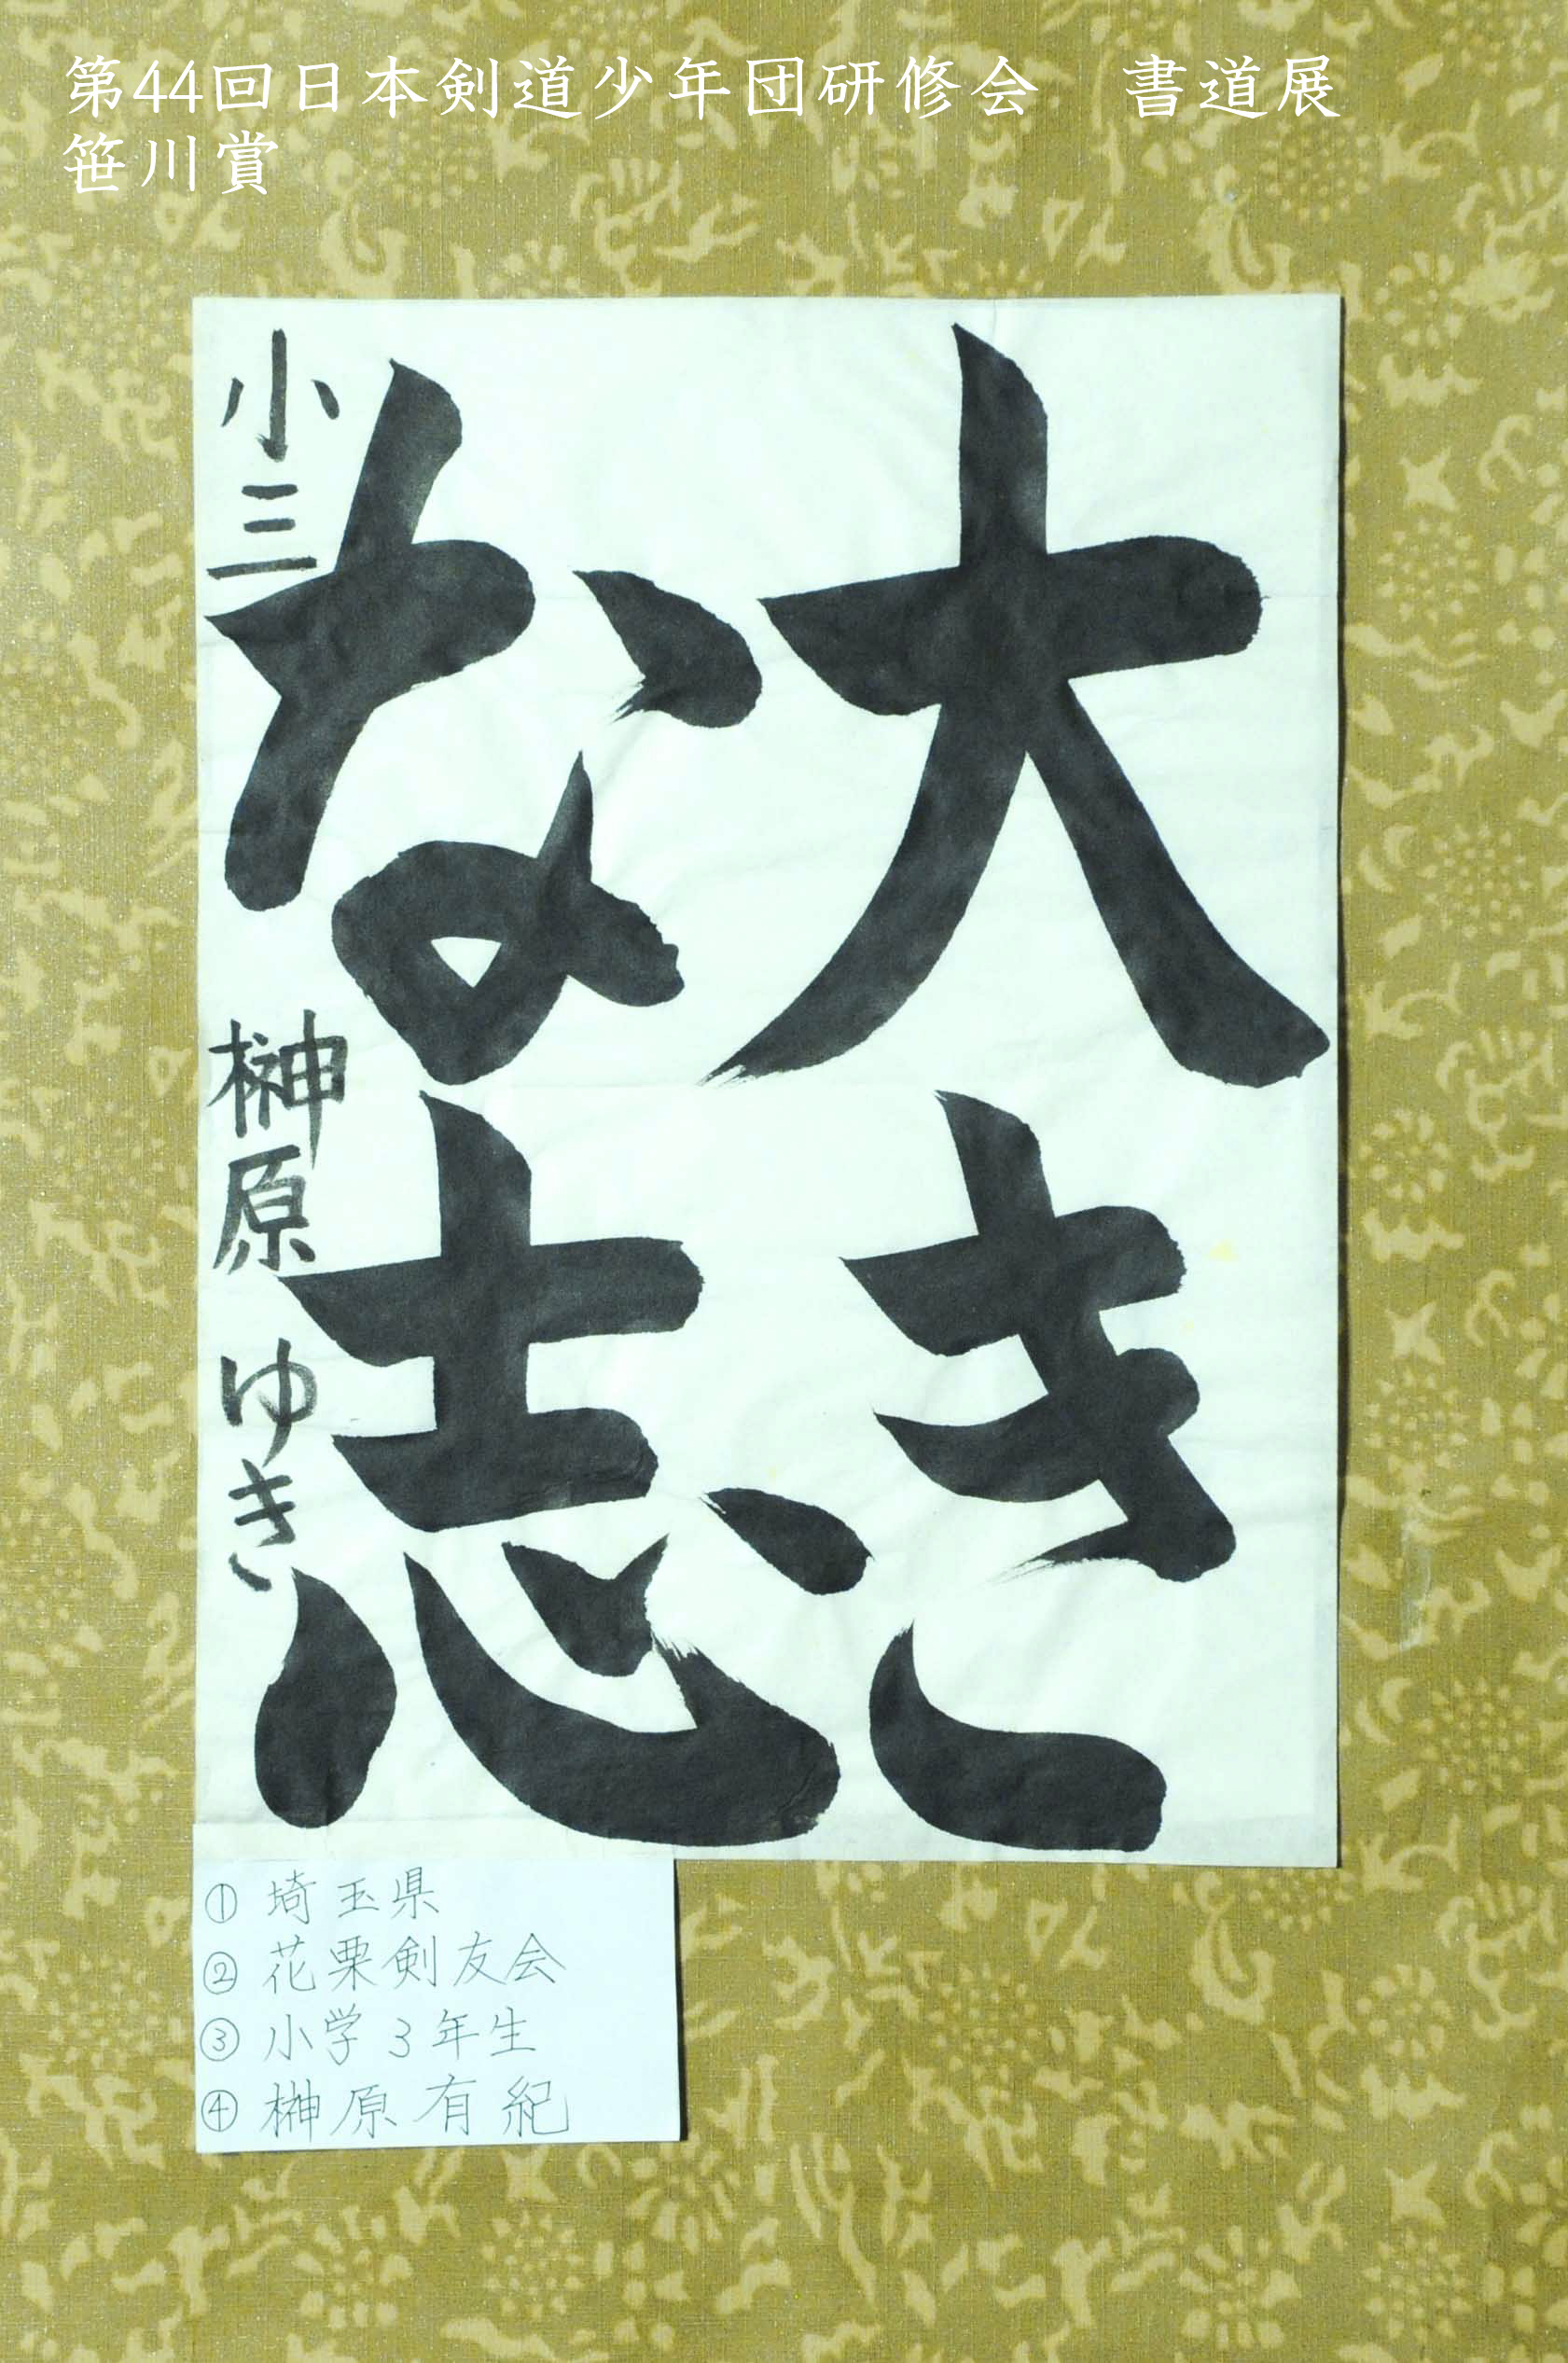 第44回日本剣道少年団研修会　書道展
笹川賞
大き
な志
小三 榊原 ゆき
① 埼玉県
② 花栗剣友会
③ 小学3年生
④ 榊原有紀